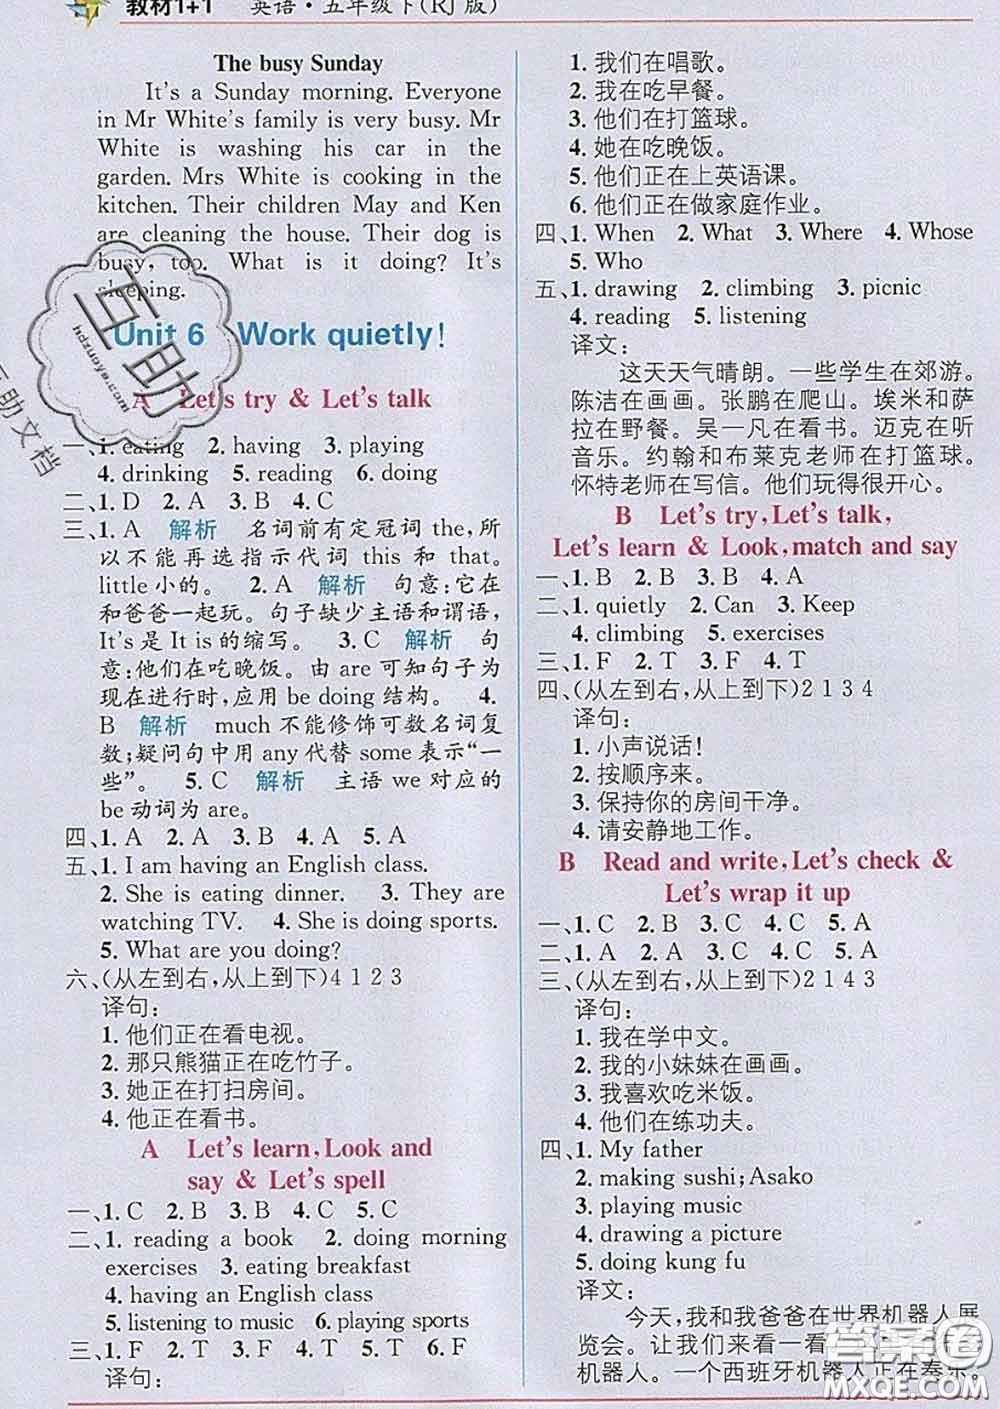 教材1+1 英语·五年级下(RJ版)
The busy Sunday
It's a Sunday morning. Everyone
in Mr White's family is very busy. Mr
White is washing his car in the
garden. Mrs White is cooking in the
kitchen. Their children May and Ken
are cleaning the house. Their dog is
busy, too. What is it doing? It's
sleeping.
Unit 6 Work quietly!
A Let's try & Let's talk
一、1. eating 2. having 3. playing
4. drinking 5. reading 6. doing
二、1. D 2. A 3. B 4. C
三、1. A 解析 名词前有定冠词 the,所
以不能再选指示代词 this 和 that。
little 小的。 2. A 解析 句意:它在
和爸爸一起玩。句子缺少主语和谓语,
It's是 It is的缩写。 3. C 解析 句
意:他们在吃晚饭。由 are 可知句子为
现在进行时,应用 be doing 结构。 4.
B 解析 much 不能修饰可数名词复
数;疑问句中用 any代替 some表示“一
些”。 5. C 解析 主语 we 对应的
be动词为 are。
四、1. A 2. A 3. B 4. A 5. A
五、1. I am having an English class.
2. She is eating dinner. 3. They are
watching TV. 4. She is doing sports.
5. What are you doing?
六、(从左到右,从上到下)4 1 2 3
译句:
1. 他们正在看电视。
2. 那只熊猫正在吃竹子。
3. 她正在打扫房间。
4. 他正在看书。
A Let's learn, Look and
say & Let's spell
一、1. C 2. B 3. B 4. C 5. C
二、1. reading a book 2. doing morning
exercises 3. eating breakfast
4. having an English class
5. listening to music 6. playing sports
三、1. F 2. T 3. T 4. F 5. T 6. F
译句:
1. 我们在唱歌。
2. 我在吃早餐。
3. 他们在打篮球。
4. 她在吃晚饭。
5. 他们正在上英语课。
6. 他们正在做家庭作业。
四、1. When 2. What 3. Where 4. Whose
5. Who
五、1. drawing 2. climbing 3. picnic
4. reading 5. listening
译文:
这天天气晴朗。一些学生在郊游。
陈洁在画画。张鹏在爬山。埃米和萨
拉在野餐。吴一凡在看书。迈克在听
音乐。约翰和布莱克老师在打篮球。
怀特老师在写信。他们玩得很开心。
B Let's try, Let's talk,
Let's learn & Look, match and say
一、1. B 2. B 3. B 4. A
二、1. quietly 2. Can 3. Keep
4. climbing 5. exercises
三、1. F 2. T 3. F 4. T
四、(从左到右,从上到下)2 1 3 4
译句:
1. 小声说话!
2. 按顺序来。
3. 保持你的房间干净。
4. 请安静地工作。
B Read and write, Let's check &
Let's wrap it up
一、1. C 2. B 3. C 4. C 5. A
二、1. A 2. A 3. C 4. A 5. A
三、(从左到右,从上到下)2 1 4 3
译句:
1. 我在学中文。
2. 我的小妹妹在画画。
3. 我喜欢吃米饭。
4. 他们在练功夫。
四、1. My father
2. making sushi; Asako
3. playing music
4. drawing a picture
5. doing kung fu
译文:
今天,我和我爸爸在世界机器人展
览会。让我们来看一看
机器人。一个西班牙机器人正在奏乐。
互助
hdzuoye.com
互助文档
答案圈
MXQE.COM